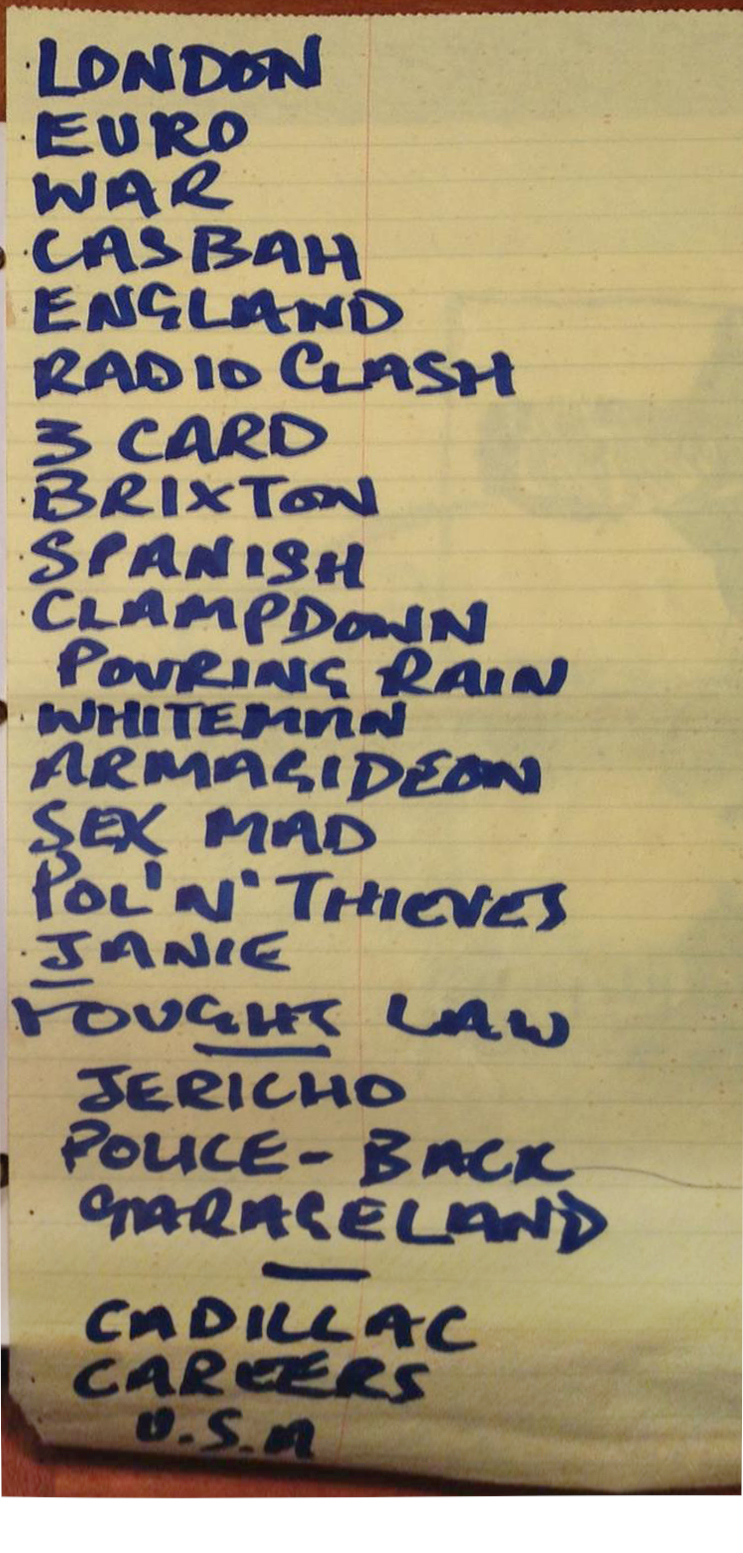 LONDON
EURO
WAR
CASBAH
ENGLAND
RADIO CLASH
3 CARD
BRIXTON
SPANISH
CLAMPDOWN
POURING RAIN
WHITEMAN
ARMAGIDEON
SEX MAD
POL'N' THIEVES
JANIE
FOUGHT LAW
JERICHO
POLICE - BACK
GARAGELAND
CADILLAC
CAREERS
U.S.A